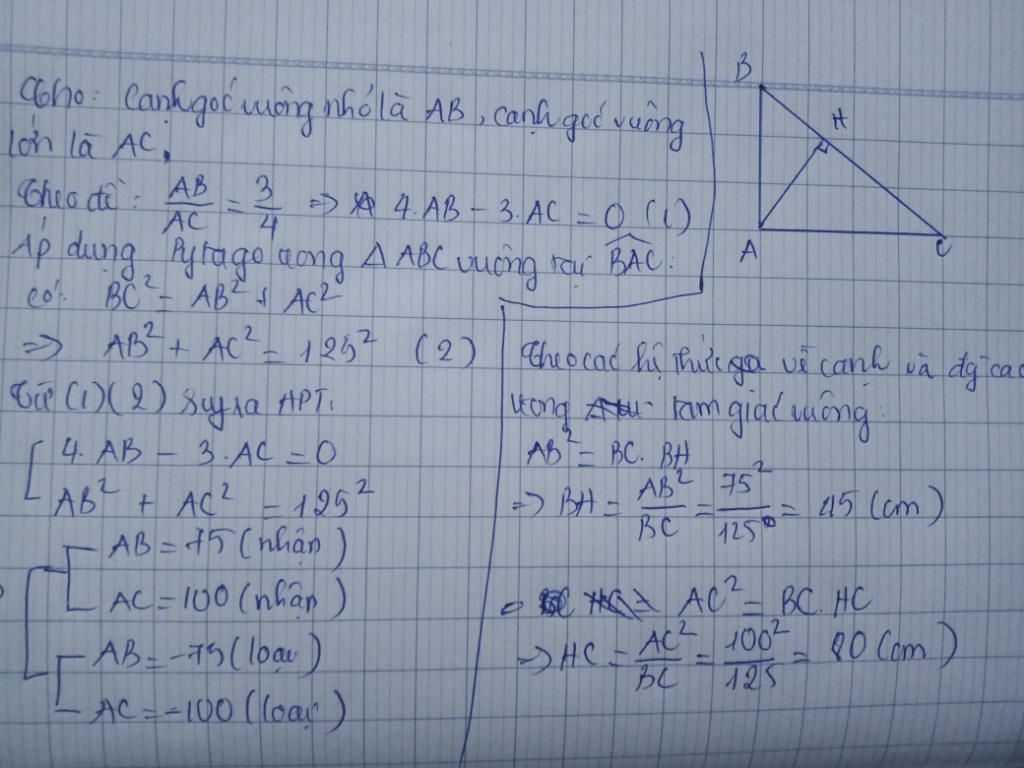 Cho: Cạnh góc vuông nhỏ là AB, cạnh góc vuông
lớn là AC.
Theo đề: AB/AC = 3/4 => 4.AB - 3.AC = 0 (1)
Áp dụng Pytago trong Δ ABC vuông tại BAC:
có: BC² = AB² + AC²
=> AB² + AC² = 125² (2)
Từ (1)(2) suy ra HPT:
4.AB - 3.AC = 0
AB² + AC² = 125²
AB = 75 (nhận)
AC = 100 (nhận)
AB = -75 (loại)
AC = -100 (loại)
B
H
A
C
Theo các hệ thức về cạnh và đg cao
trong tam giác vuông:
AB² = BC. BH
=> BH = AB²/BC = 75²/125 = 45 (cm)
AC² = BC. HC
=> HC = AC²/BC = 100²/125 = 80 (cm)